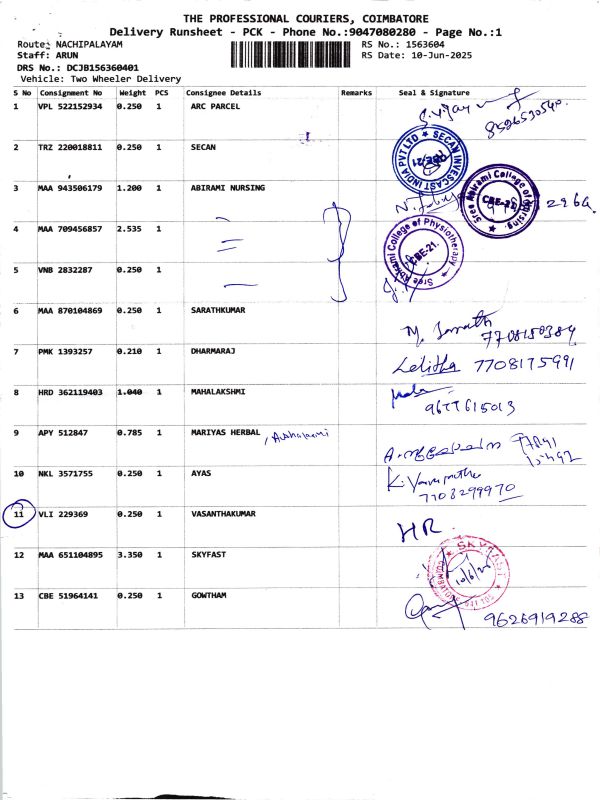 THE PROFESSIONAL COURIERS, COIMBATORE
Delivery Runsheet - PCK - Phone No.:9047080280 - Page No.:1
Route: NACHIPALAYAM RS No.: 1563604
Staff: ARUN RS Date: 10-Jun-2025
DRS No.: DCJB156360401
Vehicle: Two Wheeler Delivery
S No Consignment No Weight PCS Consignee Details Remarks Seal & Signature
1 VPL 522152934 0.250 1 ARC PARCEL
2 TRZ 220018811 0.250 1 SECAN
SECAN INVESCAST INDIA PVT LTD
CBE-21
3 MAA 943506179 1.200 1 ABIRAMI NURSING
Sree Abirami College of Nursing
CBE-21
4 MAA 709456857 2.535 1
Sree Abirami College of Physiotherapy
CBE-21.
5 VNB 2832287 0.250 1
6 MAA 870104869 0.250 1 SARATHKUMAR
M. Sarath
7708150384
7 PMK 1393257 0.210 1 DHARMARAJ
Lalitha 7708175991
8 HRD 362119403 1.040 1 MAHALAKSHMI
9677615013
9 APY 512847 0.785 1 MARIYAS HERBAL
10 NKL 3571755 0.250 1 AYAS
7708299970
11 VLI 229369 0.250 1 VASANTHAKUMAR
HR.
12 MAA 651104895 3.350 1 SKYFAST
SKYFAST
10/6/25
13 CBE 51964141 0.250 1 GOWTHAM
9626919288